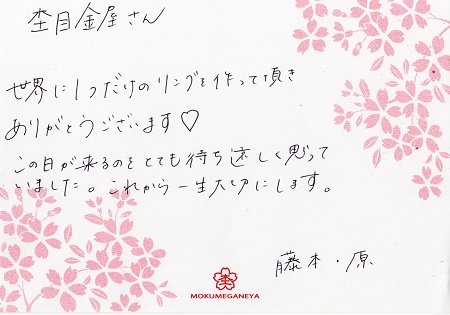 杢目金屋さん
世界に1つだけのリングを作って頂き
ありがとうございます♡
この日が来るのをとても待ち遠しく思って
いました。これから一生大切にします。
藤本・原
MOKUMEGANEYA